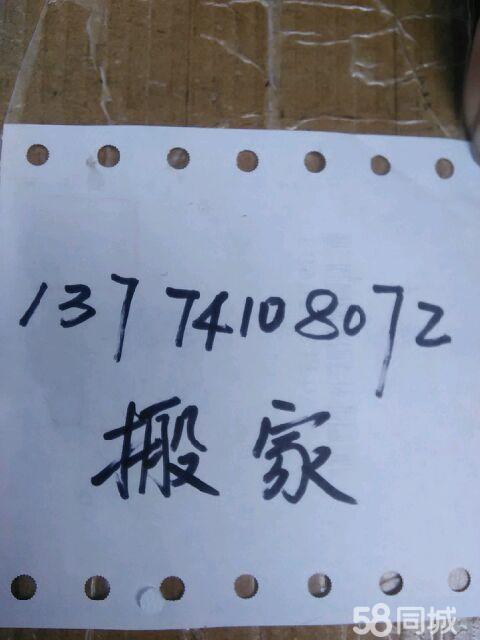 13774108072
搬家
58同城